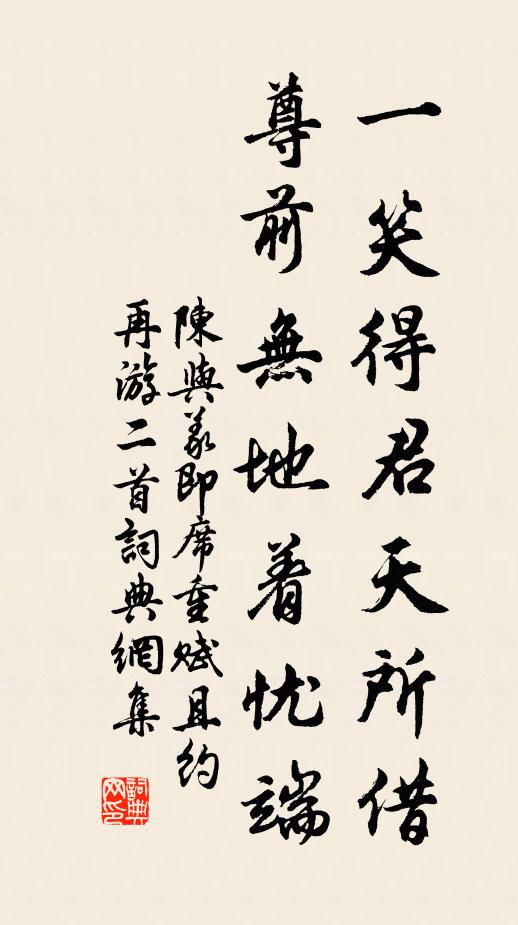 一笑得君天所借
尊前無地着忧端
陳與义即席重赋且约
再游二首詞典網集
詞典網印